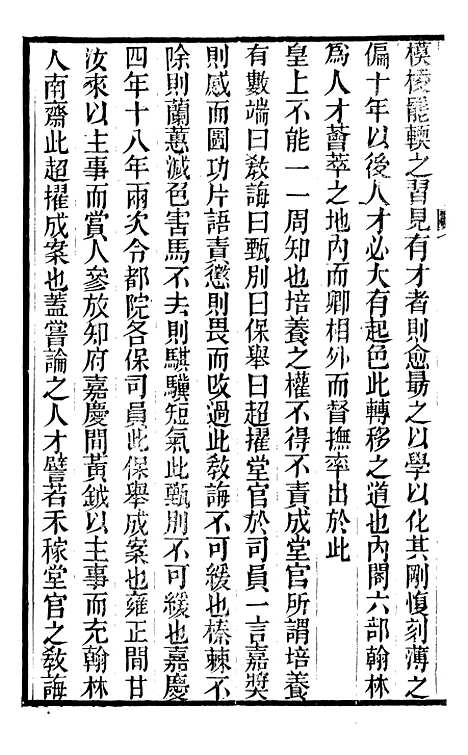 模棱罷輭之習見有才者則愈勗之以學以化其剛愎刻薄之
偏十年以後人才必大有起色此轉移之道也內閣六部翰林
爲人才薈萃之地內而卿相外而督撫率出於此
皇上不能一一周知也培養之權不得不責成堂官所謂培養
有數端曰敎誨曰甄別曰保舉曰超擢堂官於司員一言嘉奬
則感而圖功片語責懲則畏而改過此敎誨不可緩也榛棘不
除則蘭蕙減色害馬不去則騏驥短氣此甄別不可緩也嘉慶
四年十八年兩次令都院各保司員此保舉成案也雍正間甘
汝來以主事而賞人參放知府嘉慶間黃鉞以主事而充翰林
入南齋此超擢成案也蓋嘗論之人才譬若禾稼堂官之敎誨